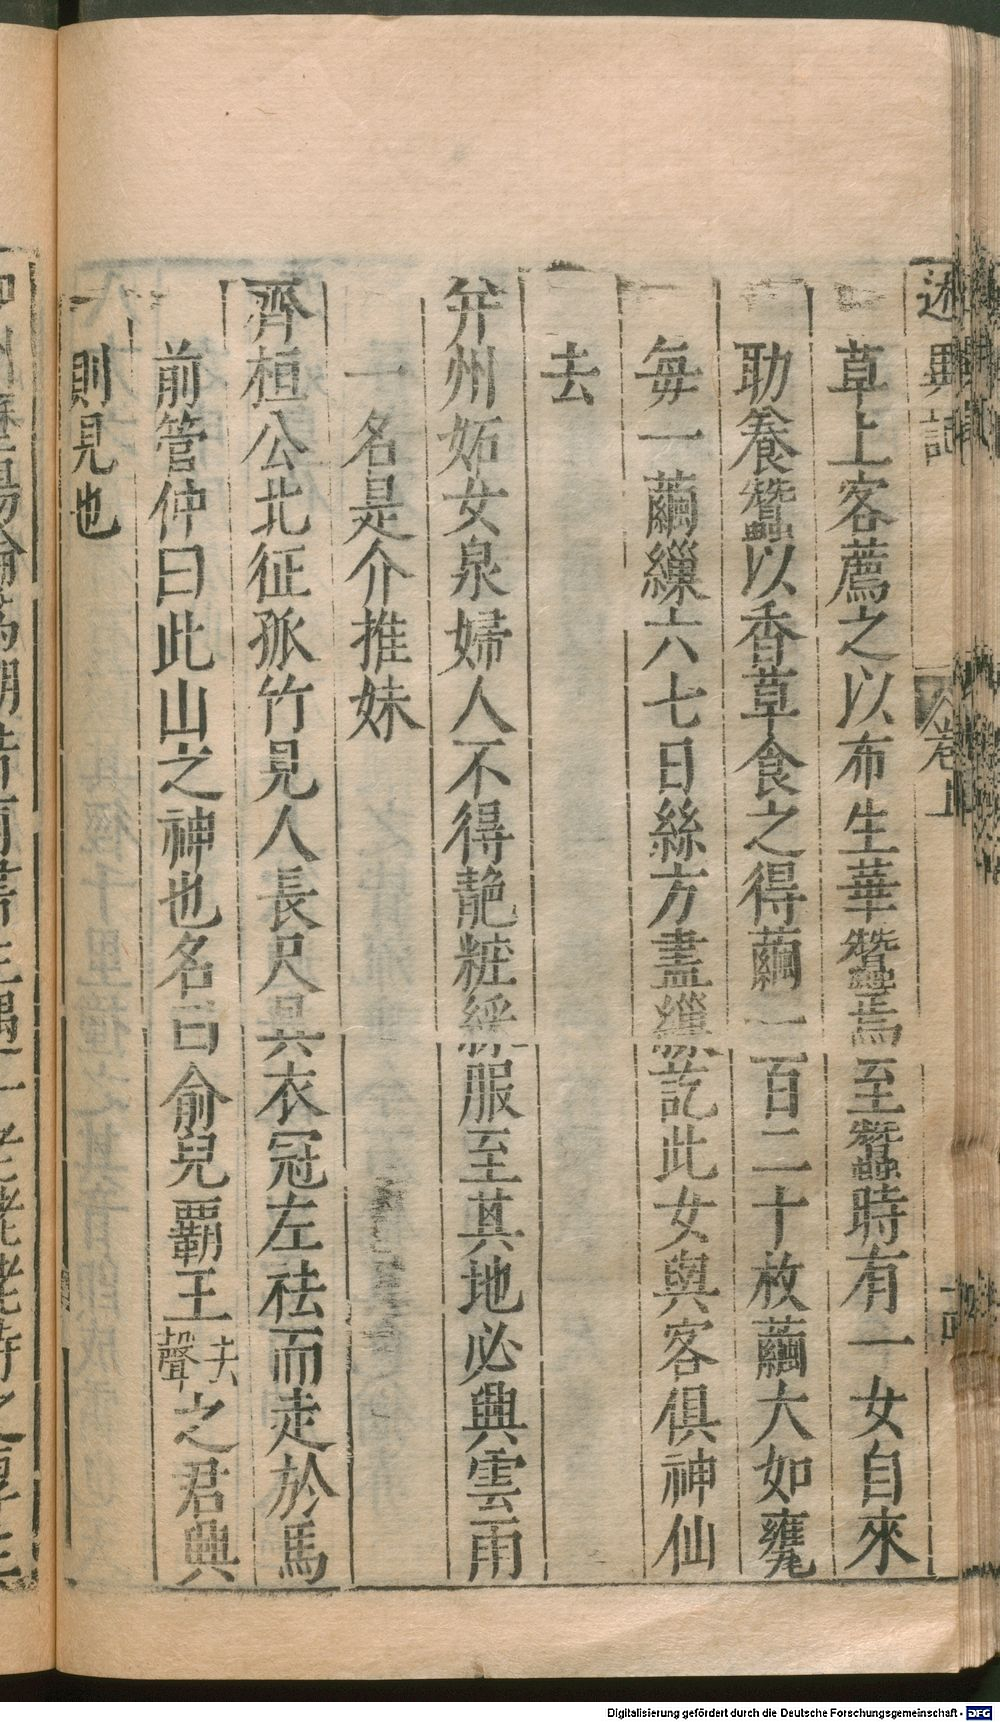 述異記
卷上
草上客薦之以布生華蠶焉至蠶時有一女自來
助養蠶以香草食之得繭一百二十枚繭大如甕
每一繭繅六七日絲方盡繅訖此女與客俱神仙
去
并州妬女泉婦人不得艶粧綵服至其地必興雲雨
一名是介推妹
齊桓公北征孤竹見人長尺具衣冠左袪而走於馬
前管仲曰此山之神也名曰俞兒霸王夫聲之君興
則見也
Digitalisierung gefördert durch die Deutsche Forschungsgemeinschaft - DFG